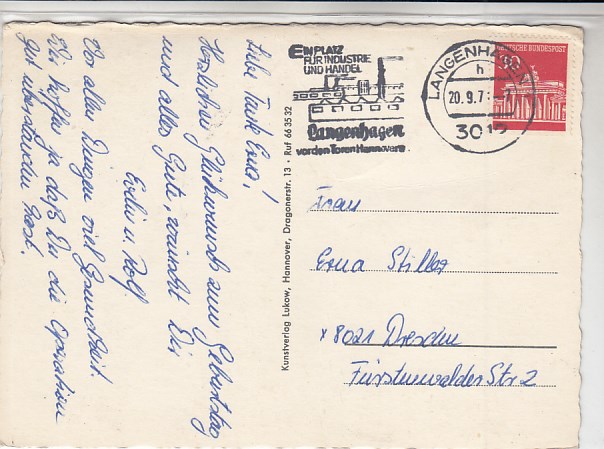 Liebe Tante Erna!
Herzlichen Glückwunsch zum Geburtstag
und alles Gute, wünscht Dir
Evelin u. Rolf.
Vor allen Dingen viel Gesundheit.
Wir hoffen ja daß Du die Operation
gut überstanden hast.
Kunstverlag Lukow, Hannover, Dragonerstr. 13 · Ruf 66 35 32
EIN PLATZ
FÜR INDUSTRIE
UND HANDEL
Langenhagen
vor den Toren Hannovers
LANGENHAGEN
h
20.9.7
3012
DEUTSCHE BUNDESPOST
Frau
Erna Stiller
x 8021 Dresden
Fürstenwalder Str 2